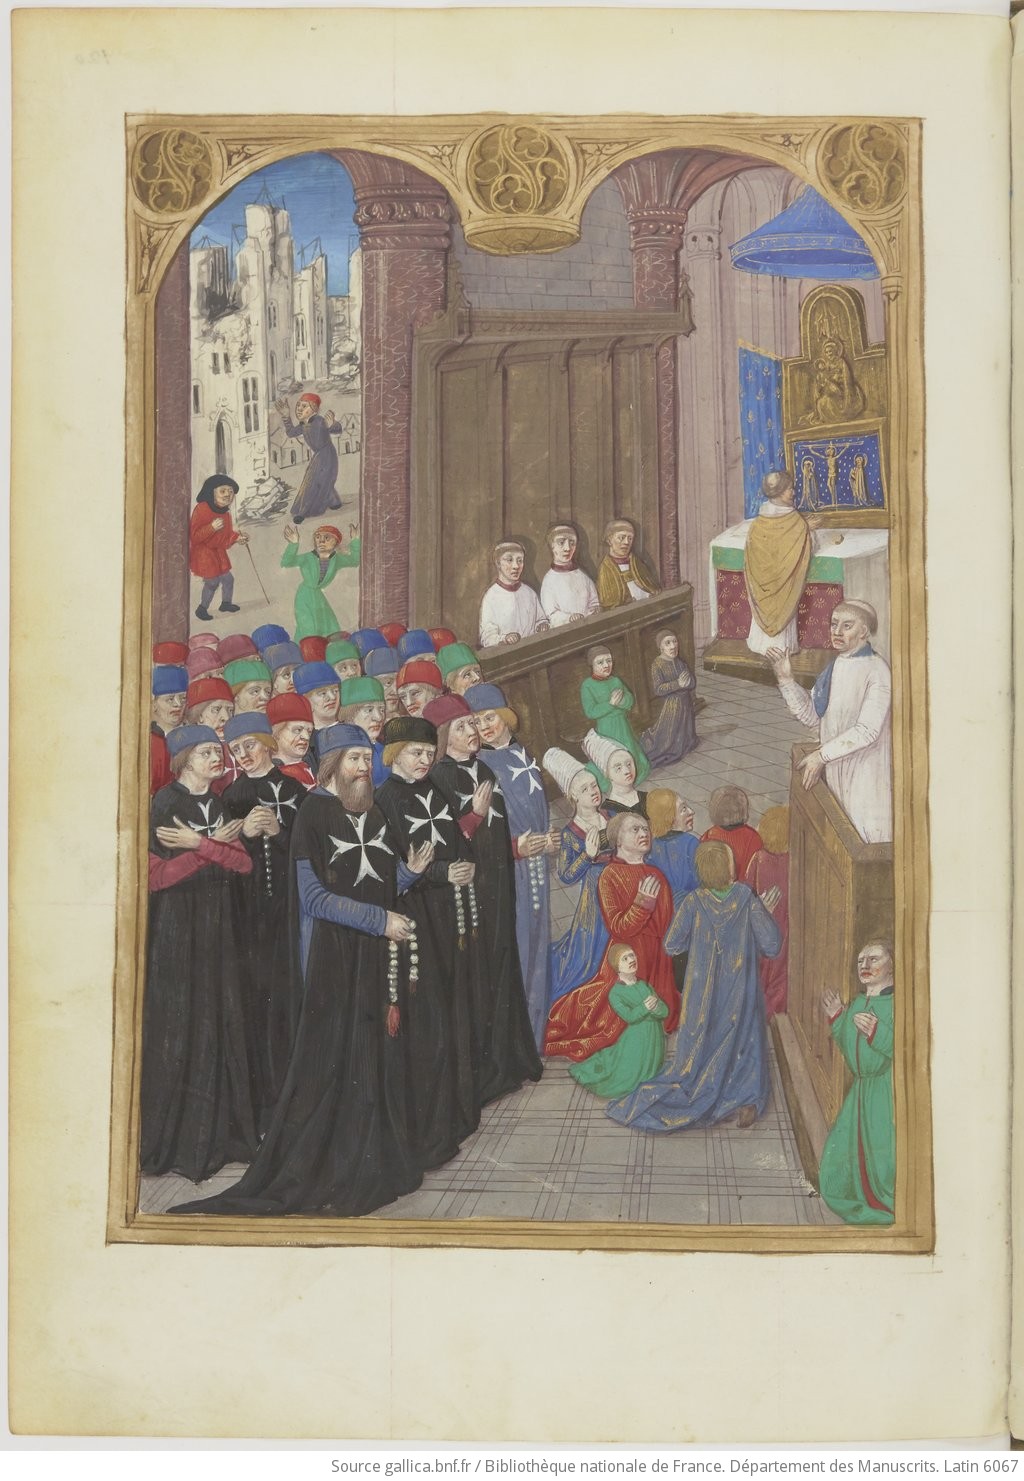 Source gallica.bnf.fr / Bibliothèque nationale de France. Département des Manuscrits. Latin 6067